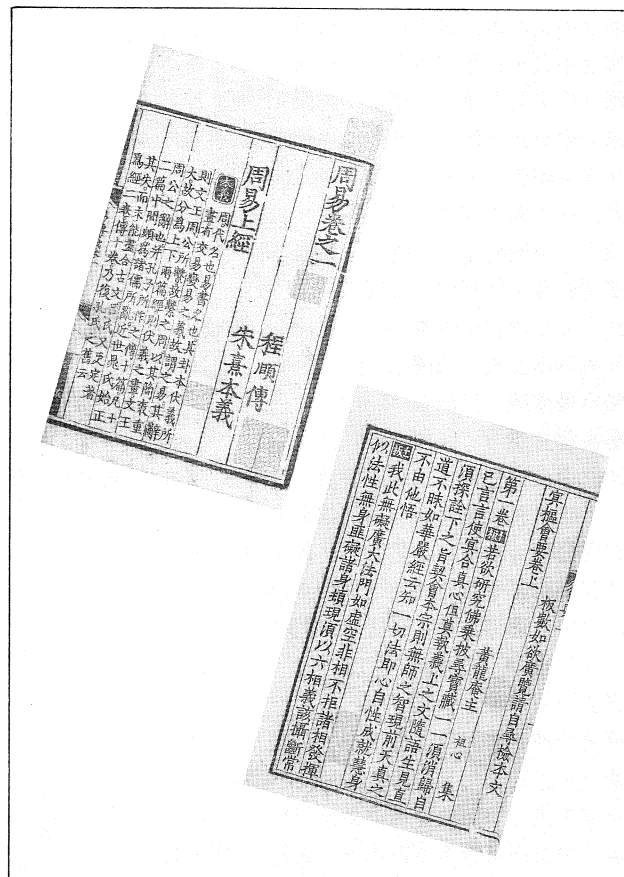 周易卷之一
程頤傳
朱熹本義
周易上經
本義 周代名也易書名也其卦本伏羲所
畫有交易變易之義故謂之易其辭
則文王周公所繫故繫之周以其簡袠重
大故分爲上下兩篇經則伏羲之畫文王
周公之辭也并孔子所作之傳十篇凡十
二篇中間頗爲諸儒所亂近世晁氏始正
其失而未能盡合古文呂氏又更定著
爲經二卷傳十卷乃復孔氏之舊云
冥樞會要卷上
板數如欲廣覽請自尋檢本文
黃龍庵主 祖心 集
第一卷 若欲研究佛乘披尋寶藏一一須消歸自
己言言使冥合眞心但莫執義上之文隨語生見直
須探詮下之旨契會本宗則無師之智現前天眞之
道不昧如華嚴經云知一切法即心自性成就慧身
不由他悟
我此無礙廣大法門如虛空非相不拒諸相發揮
似法性無身匪礙諸身頓現須以六相義該攝斷常